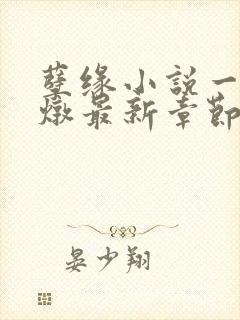 孽缘小說一
燉最新章節
晏少翔